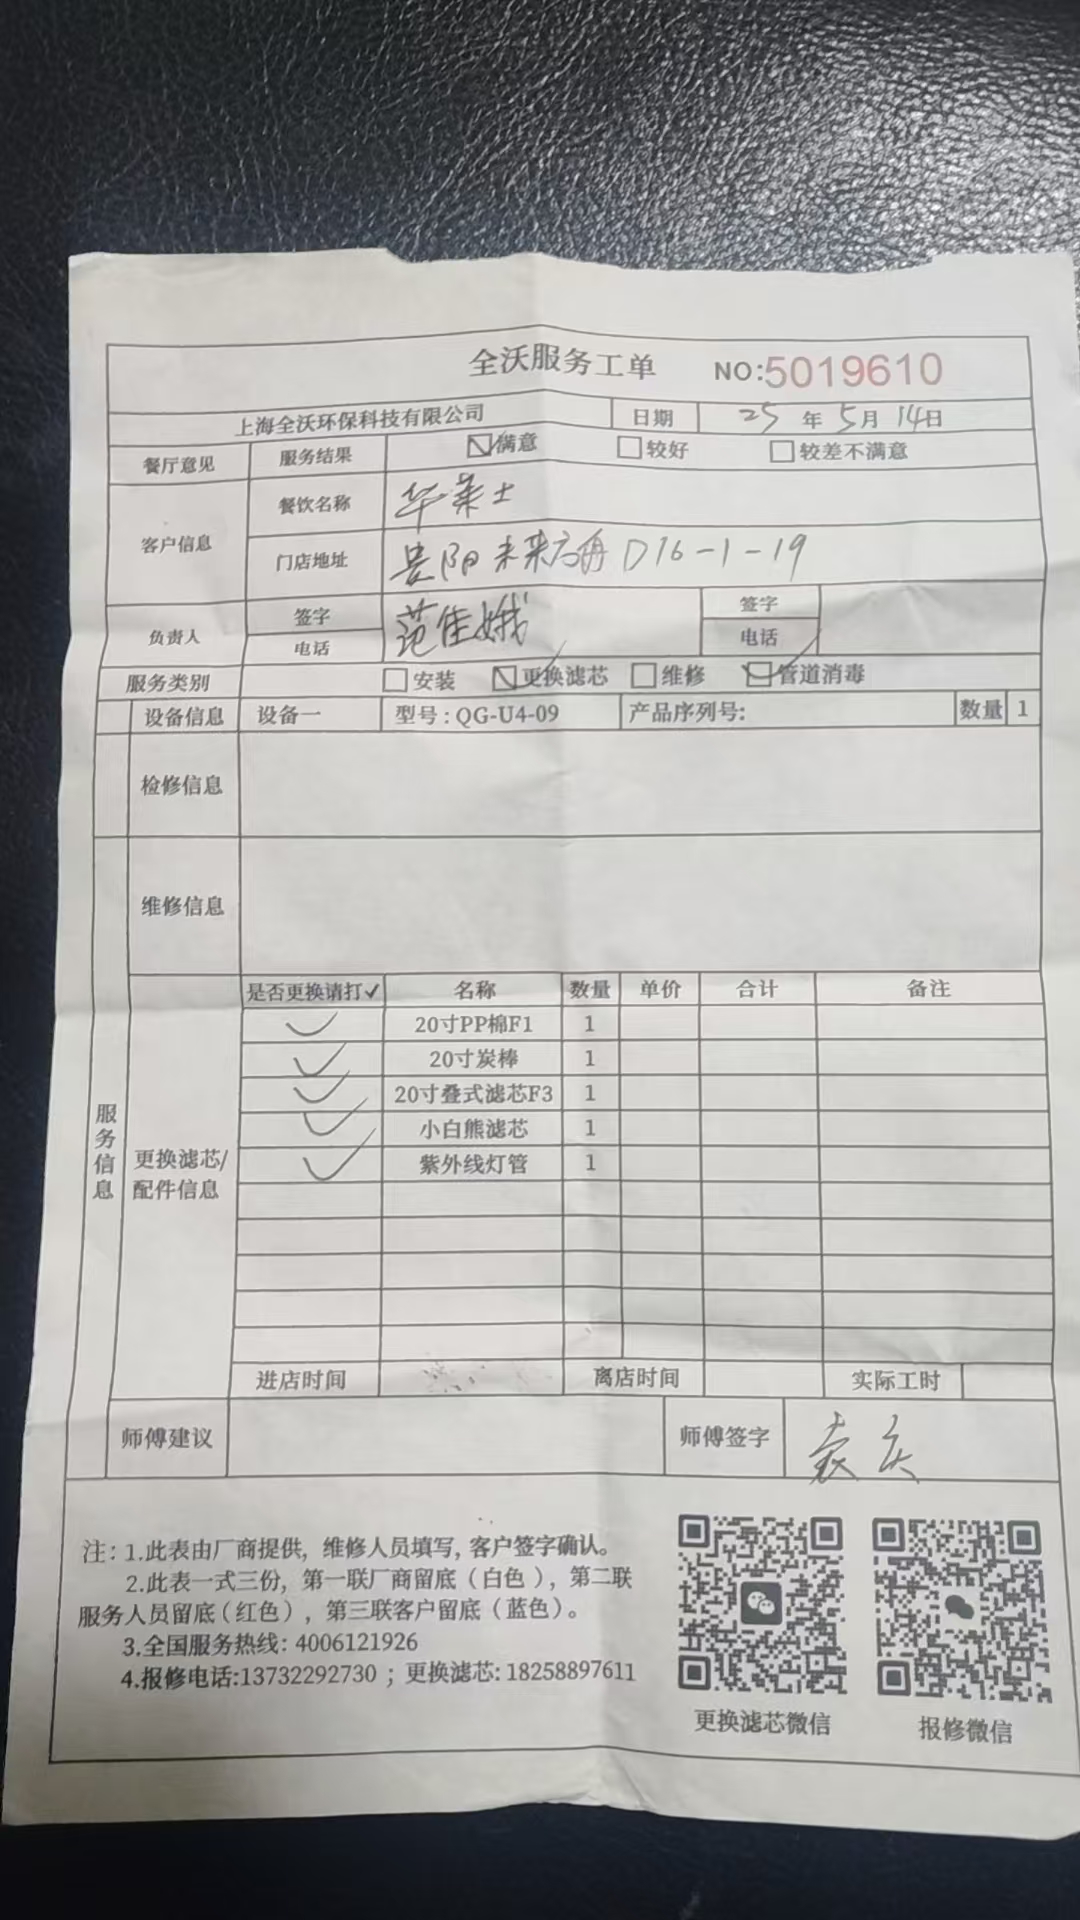 全沃服务工单 NO:5019610
上海全沃环保科技有限公司 日期 25年5月14日
餐厅意见 服务结果 满意 较好 较差不满意
客户信息 餐饮名称 华莱士
门店地址 贵阳未来方舟D16-1-19
负责人 签字 范佳娥 签字
电话 电话
服务类别 安装 更换滤芯 维修 管道消毒
设备信息 设备一 型号:QG-U4-09 产品序列号: 数量 1
检修信息
维修信息
服务信息
是否更换请打✓ 名称 数量 单价 合计 备注
✓ 20寸PP棉F1 1
✓ 20寸炭棒 1
✓ 20寸叠式滤芯F3 1
✓ 小白熊滤芯 1
✓ 紫外线灯管 1
更换滤芯/
配件信息
进店时间 离店时间 实际工时
师傅建议 师傅签字 袁庆
注:1.此表由厂商提供,维修人员填写,客户签字确认。
2.此表一式三份,第一联厂商留底(白色),第二联
服务人员留底(红色),第三联客户留底(蓝色)。
3.全国服务热线:4006121926
4.报修电话:13732292730;更换滤芯:18258897611
更换滤芯微信 报修微信